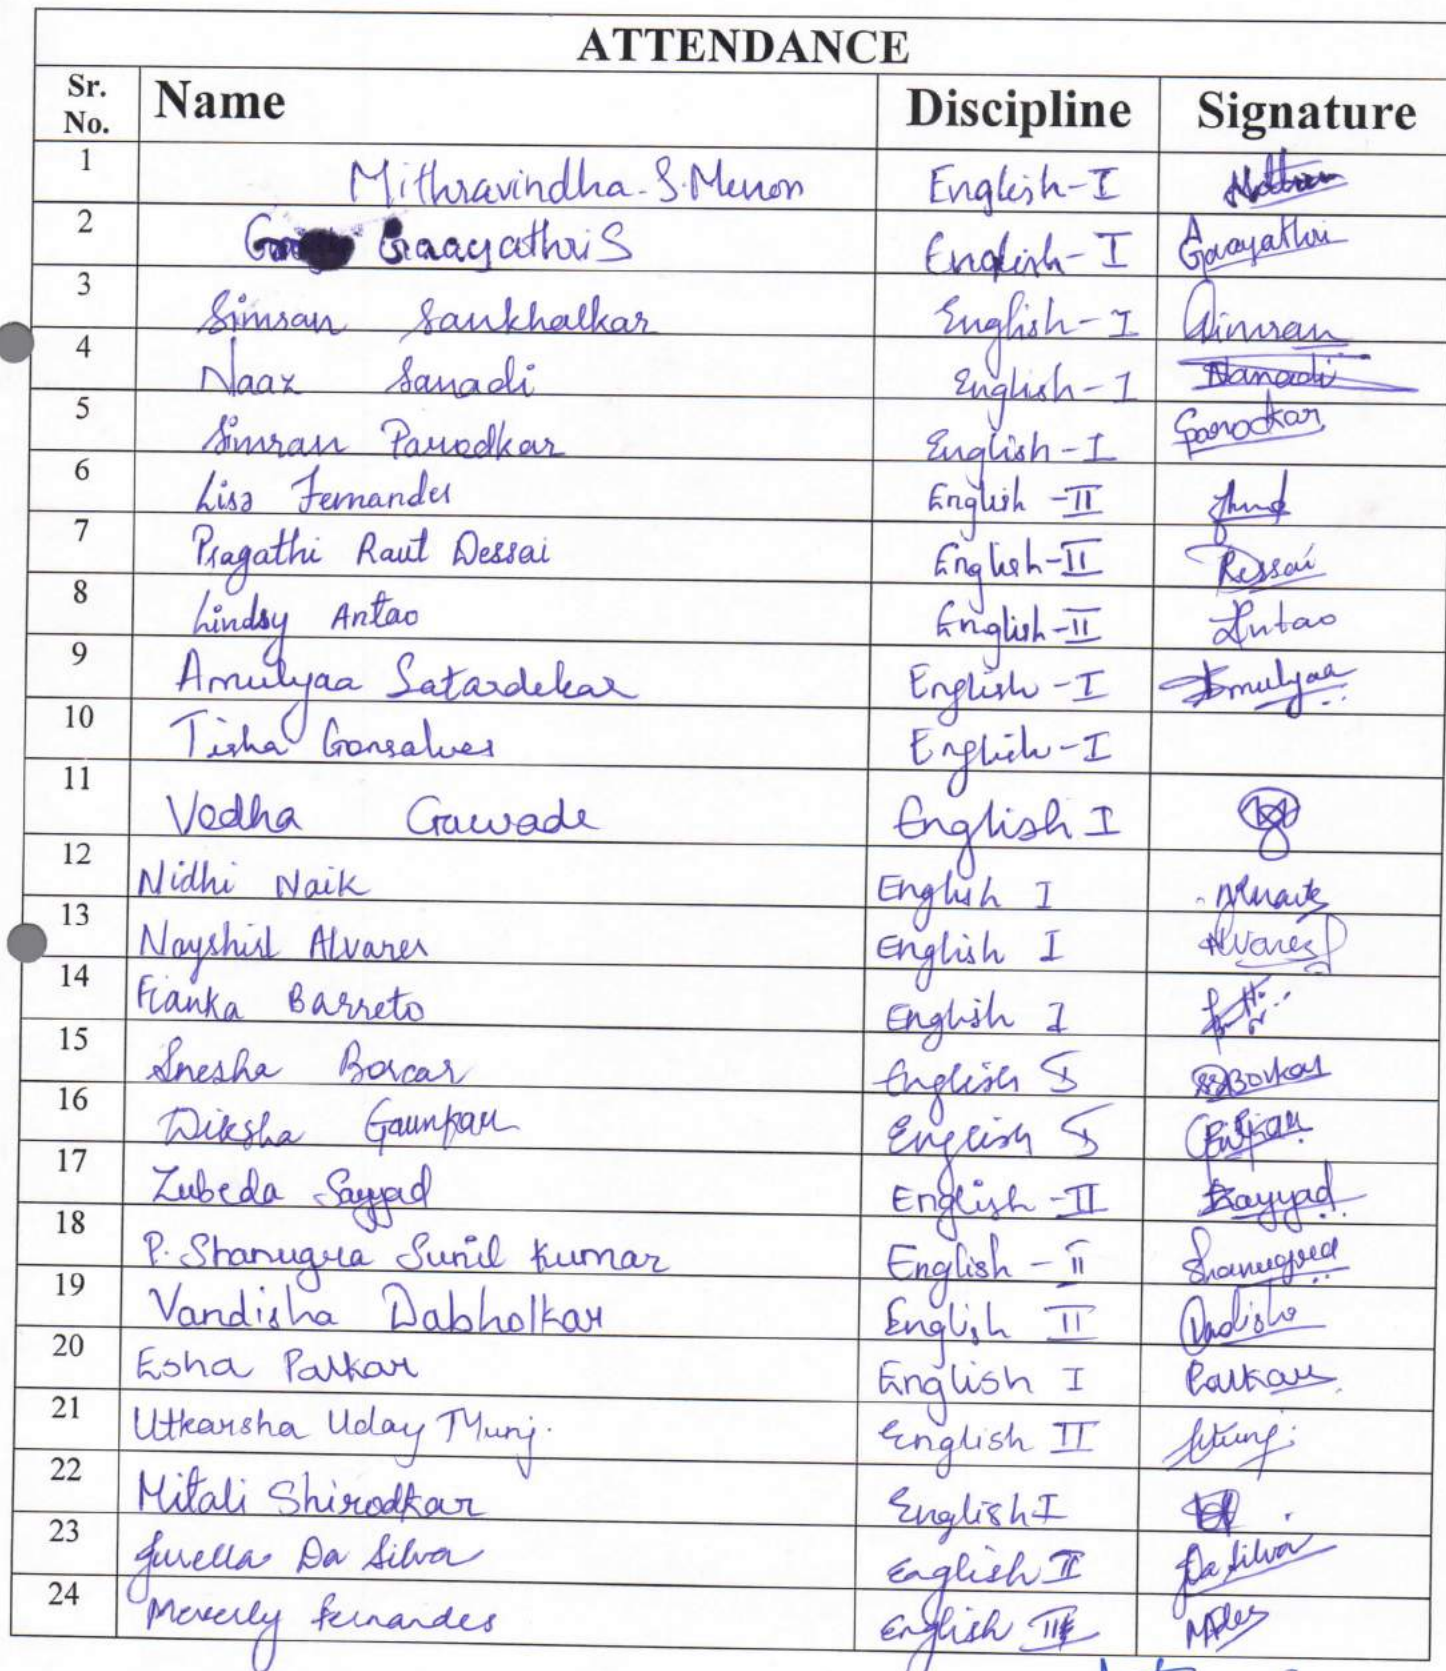 ATTENDANCE
Sr. No. Name Discipline Signature
1 Mithravindha-S.Menon English-I
2 Gaayathri S English-I Gaayathri
3 Simran Sankhalkar English-I Simran
4 Naaz Sanadi English-I Nanadi
5 Simran Parodkar English-I Sparodkar
6 Lisa Fernandes English-II
7 Pragathi Raut Dessai English-II Dessai
8 Lindsy Antao English-II Antao
9 Amulyaa Satardekar English-I Amulyaa
10 Tisha Gonsalves English-I
11 Vedha Gawade English I
12 Nidhi Naik English I
13 Nayshil Alvares English I Alvares
14 Fianka Barreto English I
15 Snesha Borcar English I SSBorkar
16 Diksha Gaunkar English I
17 Zubeda Sayyad English-II Sayyad
18 P. Shanugra Sunil Kumar English-II Shanugra
19 Vandisha Dabholkar English II
20 Esha Palkar English I Palkar
21 Utkarsha Uday Munj. English II
22 Mitali Shirodkar English I
23 Da Silva English II Da Silva
24 Meverly Fernandes English II